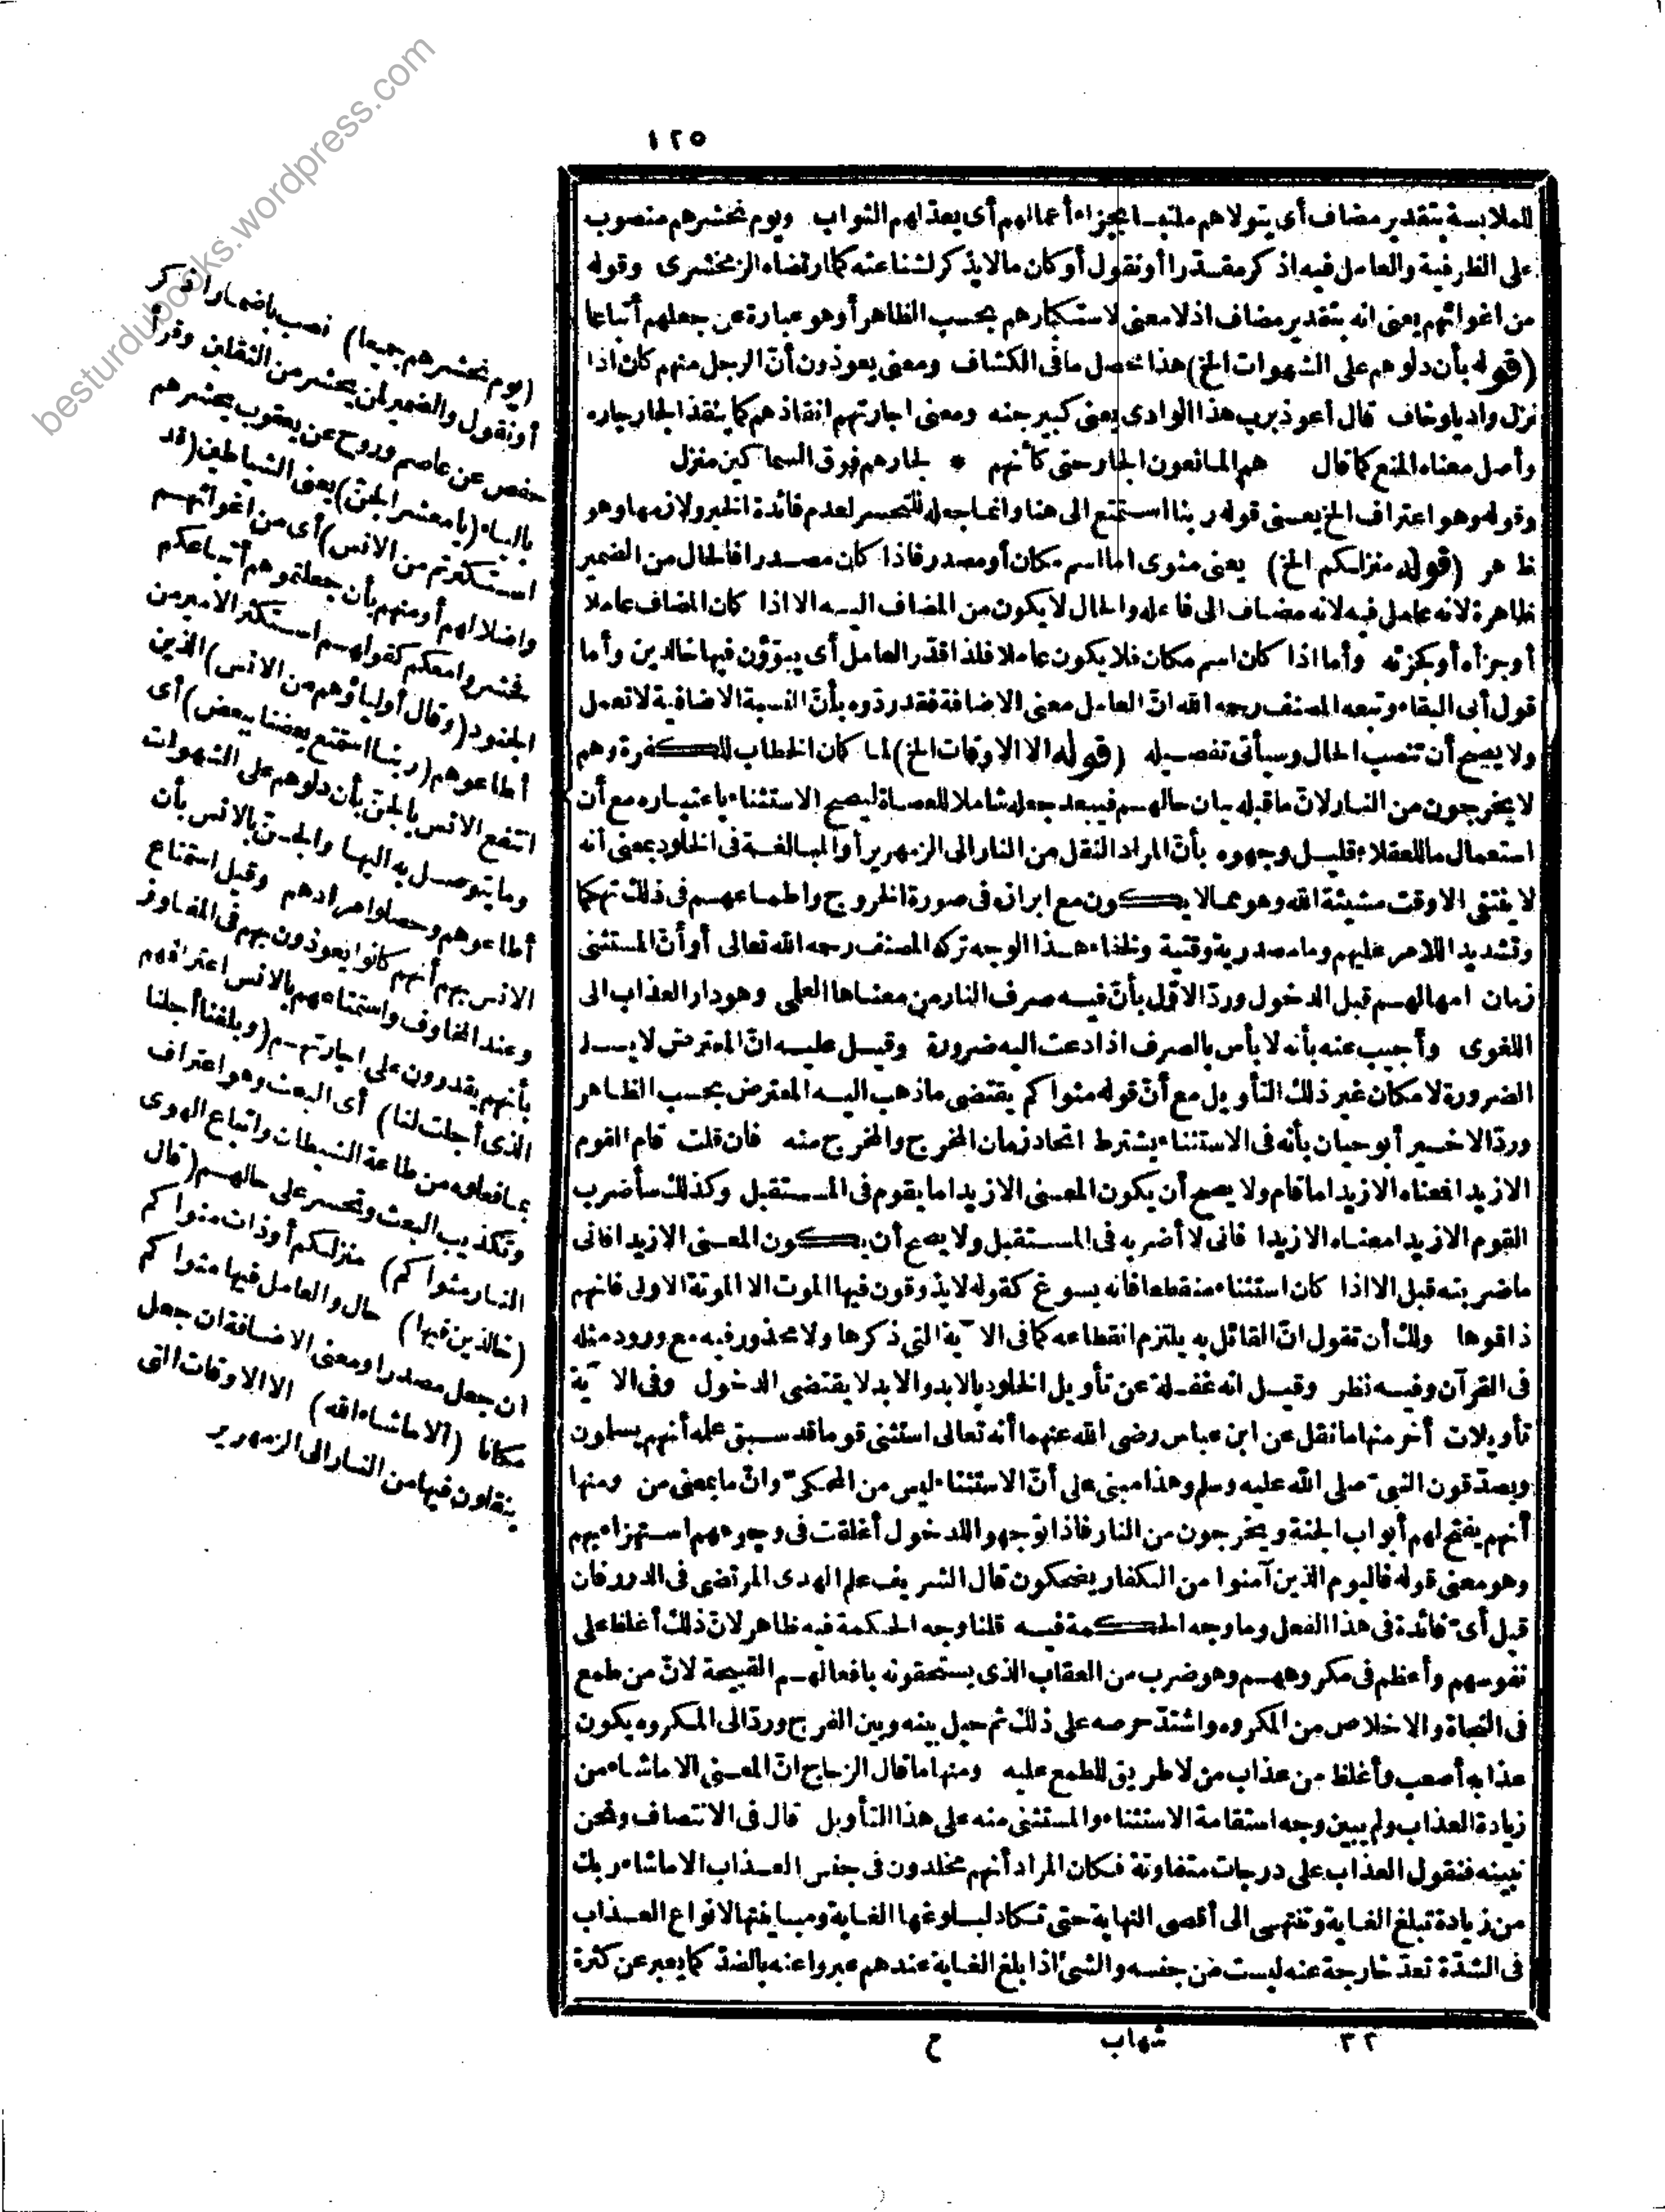 ١٢٥
للملابسة بتقدير مضاف أى يتولاهم ملتبسا بجزاء أعمالهم أى يعدّ لهم الثواب ويوم نحشرهم منصوب
على الظرفية والعامل فيه اذكر مقدّرا أو نقول أو كان مالا يذكر لشناعته كما ارتضاه الزمخشرى وقوله
من اغوائهم يعنى انه بتقدير مضاف اذ لا معنى لاستكثارهم بحسب الظاهر أو هو عبارة عن جعلهم أتباعا
(قوله بأن دلوهم على الشهوات الخ) هذا محصل ما فى الكشاف ومعنى يعوذون أنّ الرجل منهم كان اذا
نزل واديا وخاف قال أعوذ برب هذا الوادى يعنى كبير جنه ومعنى اجارتهم انقاذهم كما ينقذ الجار جاره
وأصل معناه المنع كما قال هم المانعون الجار حتى كأنهم * لجارهم فوق السماكين منزل
وقوله وهو اعتراف الخ يعنى قوله ربنا استمتع الى هنا وانما جعله للتحسر لعدم فائدة الخبر ولازمها وهو
ظاهر (قوله منزلكم الخ) يعنى مثوى اما اسم مكان أو مصدر فاذا كان مصدرا فالحال من الضمير
ظاهرة لانه عامل فيه لانه مضاف الى فاعله والحال لا يكون من المضاف اليه الا اذا كان المضاف عاملا
أو جزأه أو كجزئه وأما اذا كان اسم مكان فلا يكون عاملا فلذا قدّر العامل أى يبوّؤن فيها خالدين وأما
قول أبى البقاء وتبعه المصنف رحمه الله انّ العامل معنى الاضافة فقد ردّوه بأنّ النسبة الاضافية لا تعمل
ولا يصح أن تنصب الحال وسيأتى تفصيله (قوله الا الاوقات الخ) لما كان الخطاب للكفرة وهم
لا يخرجون من النار لانّ ما قبله بيان حالهم فيبعد جعله شاملا للعصاة ليصح الاستثناء باعتباره مع أن
استعمال ما للعقلاء قليل وجهوه بأنّ المراد النقل من النار الى الزمهرير أو المبالغة فى الخلود بمعنى أنه
لا ينتفى الا وقت مشيئة الله وهو مما لا يكون مع ابرازه فى صورة الخروج واطماعهم فى ذلك تهكما
وتشديدا للامر عليهم وما مصدرية وقتية ونلخفاء هذا الوجه تركه المصنف رحمه الله تعالى أو أنّ المستثنى
زمان امهالهم قبل الدخول وردّ الاوّل بأنّ فيه صرف النار من معناها العلمى وهو دار العذاب الى
اللغوى وأجيب عنه بأنه لا بأس بالصرف اذا دعت اليه ضرورة وقيل عليه انّ المعترض لا يسلم
الضرورة لامكان غير ذلك التأويل مع أنّ قوله مثواكم يقتضى ما ذهب اليه المعترض بحسب الظاهر
وردّ الاخير أبو حيان بأنه فى الاستثناء يشترط اتحاد زمان المخرج والمخرج منه فان قلت قام القوم
الا زيدا فمعناه الا زيدا ما قام ولا يصح أن يكون المعنى الا زيدا ما يقوم فى المستقبل وكذلك سأضرب
القوم الا زيدا معناه الا زيدا فانى لا أضربه فى المستقبل ولا يصح أن يكون المعنى الا زيدا فانى
ما ضربته قبل الا اذا كان استثناء منقطعا فانه يسوغ كقوله لا يذوقون فيها الموت الا الموتة الاولى فانهم
ذاقوها ولك أن تقول انّ القائل به يلتزم انقطاعه كما فى الآية التى ذكرها ولا محذور فيه مع ورود مثله
فى القرآن وفيه نظر وقيل انه غفلة عن تأويل الخلود بالابد والابد لا يقتضى الدخول وفى الآية
تأويلات أخر منها ما نقل عن ابن عباس رضى الله عنهما أنه تعالى استثنى قوما قد سبق علمه أنهم يسلمون
ويصدّقون النبىّ صلى الله عليه وسلم وهذا مبنى على أنّ الاستثناء ليس من المحكىّ وانّ ما بمعنى من ومنها
أنهم يفتح لهم أبواب الجنة ويخرجون من النار فاذا توجهوا للدخول أغلقت فى وجوههم استهزاء بهم
وهو معنى قوله فاليوم الذين آمنوا من الكفار يضحكون قال الشريف علم الهدى المرتضى فى الدرر فان
قيل أىّ فائدة فى هذا الفعل وما وجه الحكمة فيه قلنا وجه الحكمة فيه ظاهر لانّ ذلك أغلظ على
نفوسهم وأعظم فى مكروههم وهو ضرب من العقاب الذى يستحقونه بافعالهم القبيحة لانّ من طمع
فى النجاة والاخلاص من المكروه واشتدّ حرصه على ذلك ثم حيل بينه وبين الفرج وردّ الى المكروه يكون
عذابه أصعب وأغلظ من عذاب من لا طريق للطمع عليه ومنها ما قال الزجاج انّ المعنى الا ما شاء من
زيادة العذاب ولم يبين وجه استقامة الاستثناء والمستثنى منه على هذا التأويل قال فى الانتصاف ونحن
نبينه فنقول العذاب على درجات متفاوتة فكان المراد أنهم مخلدون فى جنس العذاب الا ما شاء ربك
من زيادة تبلغ الغاية وتنتهى الى أقصى النهاية حتى تكاد لبلوغها الغاية ومباينتها لانواع العذاب
فى الشدّة تعدّ خارجة عنه ليست من جنسه والشئ اذا بلغ الغاية عندهم عبروا عنه بالضدّ كما يعبر عن كثرة
٣٢ شهاب ح
(يوم نحشرهم جميعا) نصب باضمار اذكر
أو نقول والضمير لمن يحشر من الثقلين وقرأ
حفص عن عاصم وروح عن يعقوب يحشرهم
بالياء (يا معشر الجن) يعنى الشياطين (قد
استكثرتم من الانس) أى من اغوائهم
واضلالهم أو منهم بأن جعلتموهم أتباعكم
فحشروا معكم كقولهم استكثر الامير من
الجنود (وقال أولياؤهم من الانس) الذين
أطاعوهم (ربنا استمتع بعضنا ببعض) أى
انتفع الانس بالجنّ بأن دلوهم على الشهوات
وما يتوصل به اليها والجن بالانس بأن
أطاعوهم وحصلوا مرادهم وقيل استمتاع
الانس بهم أنهم كانوا يعوذون بهم فى المفاوز
وعند المخاوف واستمتاعهم بالانس اعترافهم
بأنهم يقدرون على اجارتهم (وبلغنا أجلنا
الذى أجلت لنا) أى البعث وهو اعتراف
بما فعلوه من طاعة الشيطان واتباع الهوى
وتكذيب البعث وتحسر على حالهم (قال
النار مثواكم) منزلكم أو ذات مثواكم
(خالدين فيها) حال والعامل فيها مثواكم
ان جعل مصدرا ومعنى الاضافة ان جعل
مكانا (الا ما شاء الله) الا الاوقات التى
ينقلون فيها من النار الى الزمهرير
besturdubooks.wordpress.com